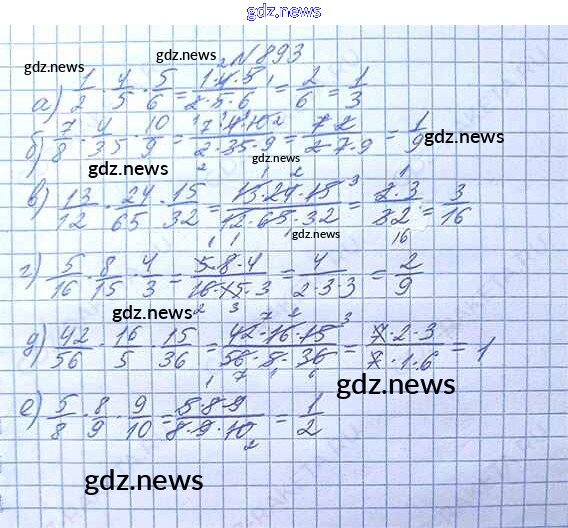 gdz.news
№893
gdz.news gdz.news
а) 1/2 · 4/5 · 5/6 = 1·4·5/2·5·6 = 2/6 = 1/3
б) 7/8 · 4/35 · 10/9 = 7·4·10/2·35·9 = 7·2/2·7·9 = 1/9
gdz.news gdz.news
в) 13/12 · 24/65 · 15/32 = 13·24·15/12·65·32 = 2·3/32 = 3/16
gdz.news
г) 5/16 · 8/15 · 4/3 = 5·8·4/16·15·3 = 4/2·3·3 = 2/9
gdz.news
д) 42/56 · 16/5 · 15/36 = 42·16·15/56·5·36 = 7·2·3/7·1·6 = 1
gdz.news
е) 5/8 · 8/9 · 9/10 = 5·8·9/8·9·10 = 1/2
gdz.news